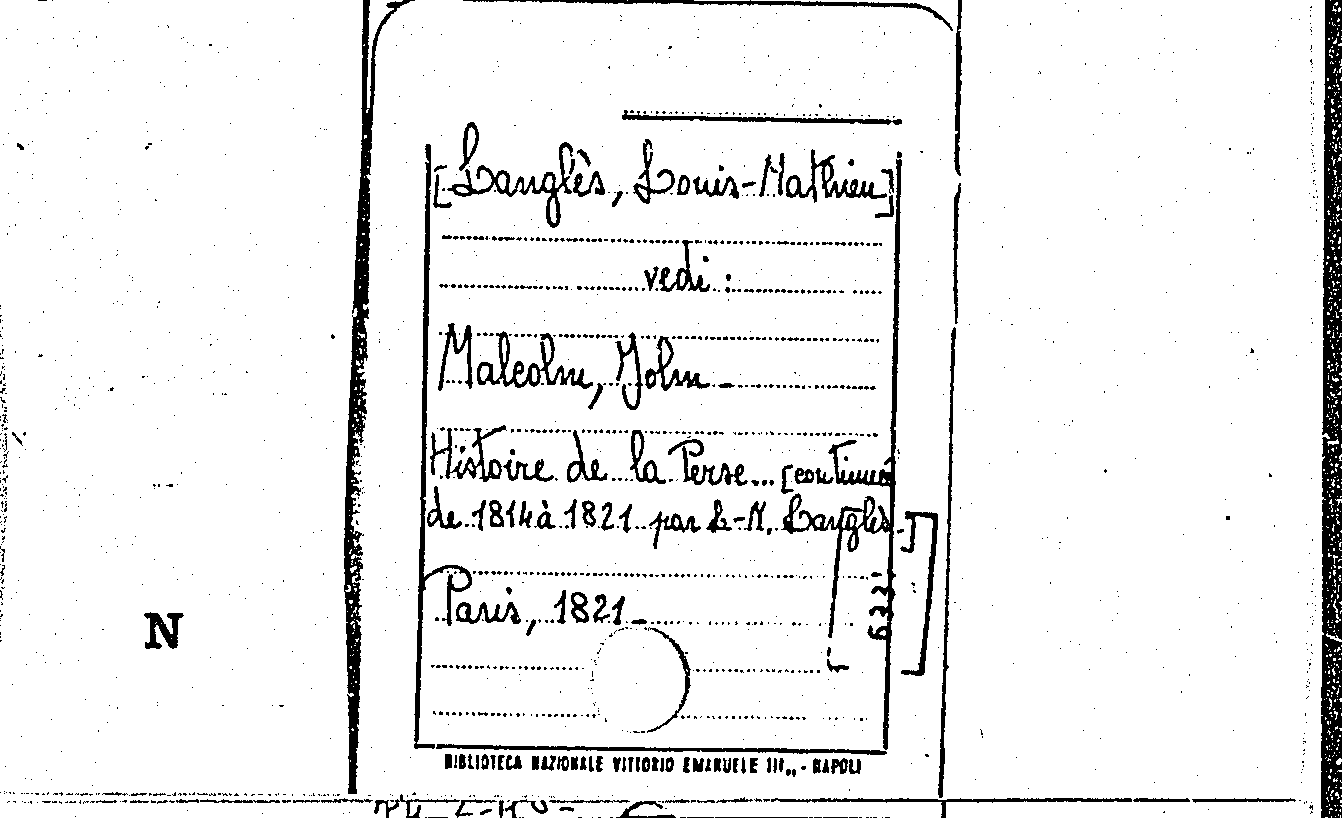 [Langlès, Louis-Mathieu]
vedi :
Malcolm, John -
Histoire de la Perse... [continuée
de 1814 à 1821 par L.-M. Langlès.]
Paris, 1821 -
N
BIBLIOTECA NAZIONALE VITTORIO EMANUELE III,, - NAPOLI